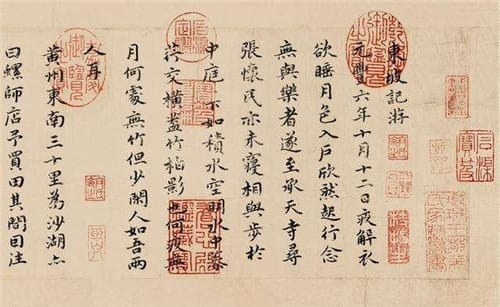 東坡記
元豐六年十月十二日夜解衣
欲睡月色入戶欣然起行念
無與樂者遂至承天寺尋
張懷民亦未寢相與步於
中庭下如積水空明水中藻
荇交橫蓋竹柏影也何夜無
月何處無竹但少閑人如吾兩
人耳
黃州東南三十里為沙湖亦
曰螺師店予買田其間因往